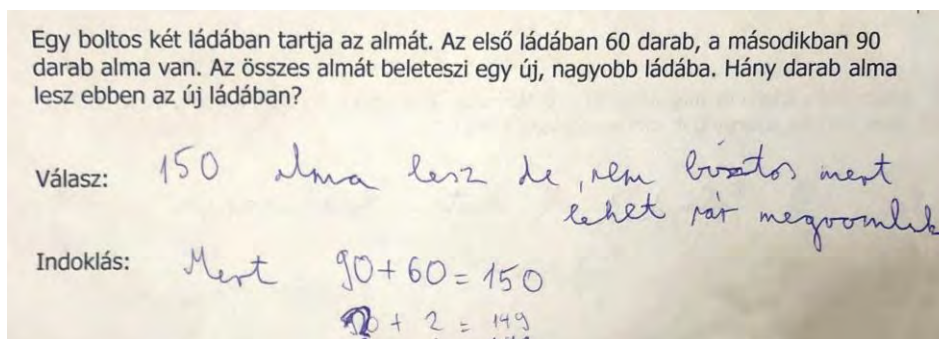 Egy boltos két ládában tartja az almát. Az első ládában 60 darab, a másodikban 90
darab alma van. Az összes almát beleteszi egy új, nagyobb ládába. Hány darab alma
lesz ebben az új ládában?
Válasz: 150 alma lesz de, nem biztos mert
lehet már megromlik
Indoklás: Mert 90+60=150
+ 2 = 149